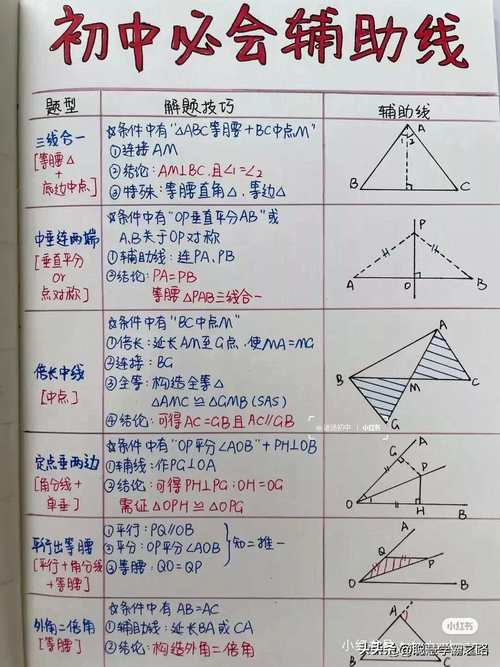 初中必会辅助线
题型 解题技巧 辅助线
三线合一
[等腰△
+
底边中点]
☆条件中有"△ABC等腰+BC中点M"
①连接AM
②结论:AM⊥BC,且∠1=∠2
③特殊:等腰直角△,等边△
A
1 2
B C
中垂连两端
[垂直平分
or
点对称]
☆条件中有"OP垂直平分AB"或
A,B关于OP对称
①辅助线:连PA、PB
②结论:PA=PB
等腰△PAB三线合一
P
A O B
倍长中线
[中点]
☆条件中有"BC中点M"
①倍长:延长AM至G点,使MA=MG
②连接:BG
③全等:构造全等△
△AMC≌△GMB(SAS)
④结论:可得AC=GB且AC∥GB
A
B M C
G
小红书
定点垂两边
[角分线+
单垂]
☆条件中有"OP平分∠AOB"+PH⊥OB
①辅线:作PG⊥OA
②结论:可得PH⊥PG:OH=OG
需证△OPH≌△OPG
A
G
P
O H B
平行出等腰
[平行+角分线
+等腰]
①平行:PQ∥OB
②平分:OP平分∠AOB
③等腰:QO=QP
知二推一
A
Q P
O B
外角二倍角
[等腰]
☆条件中有AB=AC
①辅助线:延长BA或CA
②结论:构造外角二倍角
A
B C
小红书
头条@聪慧学霸之路